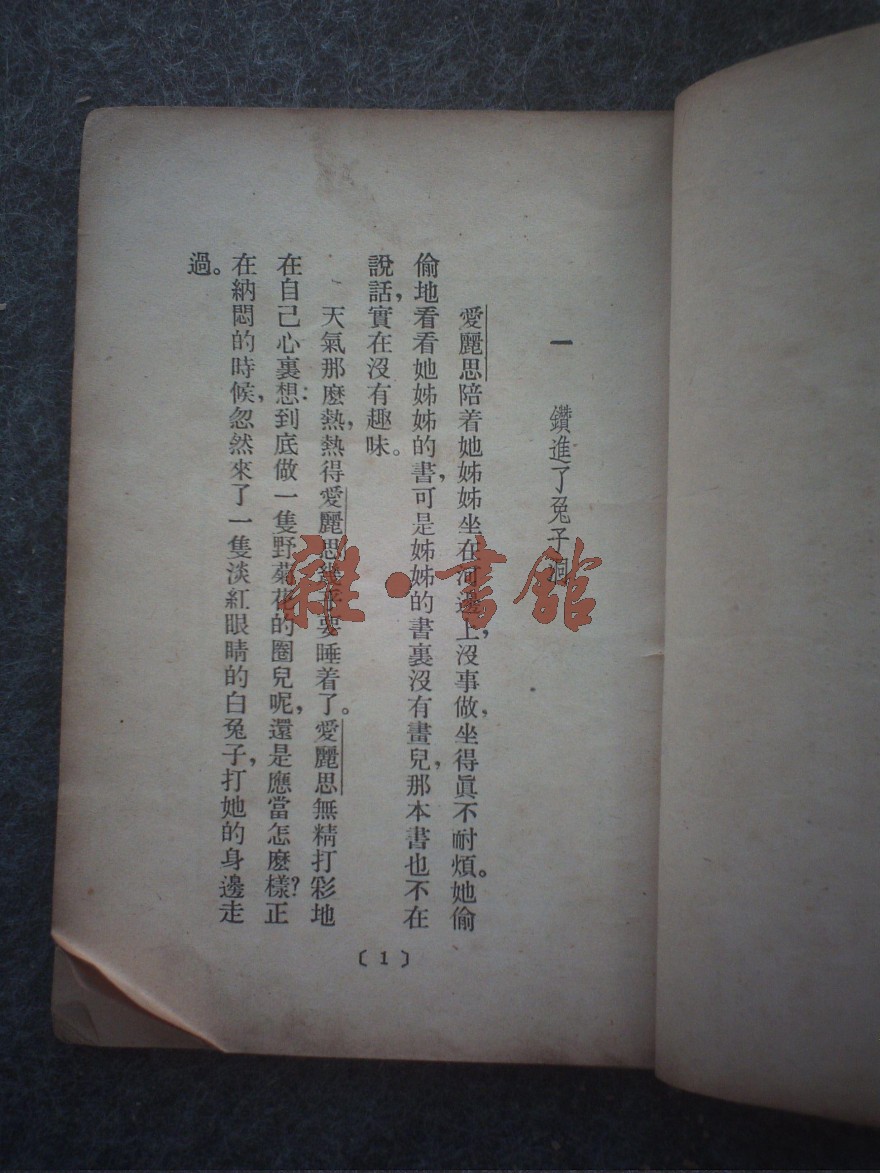 一 鑽進了兔子洞
愛麗思陪着她姊姊坐在河邊上，沒事做，坐得眞不耐煩。她偷
偷地看看她姊姊的書，可是姊姊的書裏沒有畫兒，那本書也不在
說話，實在沒有趣味。
天氣那麼熱，熱得愛麗思幾乎要睡着了。愛麗思無精打彩地
在自己心裏想：到底做一隻野菊花的圈兒呢，還是應當怎麼樣？正
在納悶的時候，忽然來了一隻淡紅眼睛的白兔子，打她的身邊走
過。
〔1〕
雜·書館